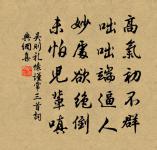 高氣初不群
咄咄端逼人
妙處欲絕倒
未怕兒輩嗔
吳則禮懷謹常三首詞
典網